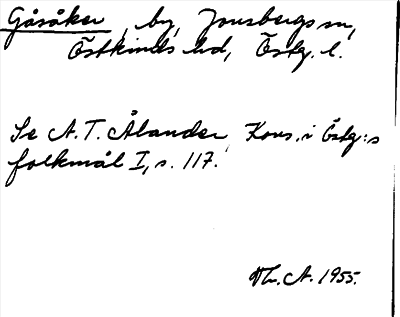 Gåsåker, by, Jonsbergs sn,
Östkinds hd, Östg. l.
Se A. T. Ålander, Kons. i Östg:s
folkmål I, s. 117.
A. 1955.